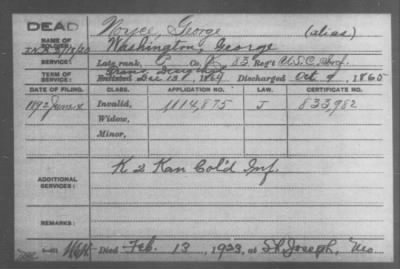 DEAD
Noyce, George (alias)
NAME OF SOLDIER: Washington, George
SERVICE: Late rank, P Co. 83 Reg't U.S.C. Inf.
TERM OF SERVICE: Enlisted Dec 13, Discharged Oct 9, 1865
DATE OF FILING. CLASS. APPLICATION NO. LAW. CERTIFICATE NO.
1892 June Invalid, 1114,875 J 833,982
Widow,
Minor,
ADDITIONAL SERVICES: K 2 Kan Col'd Inf.
REMARKS:
Died Feb. 13, 1933, at St. Joseph, Mo